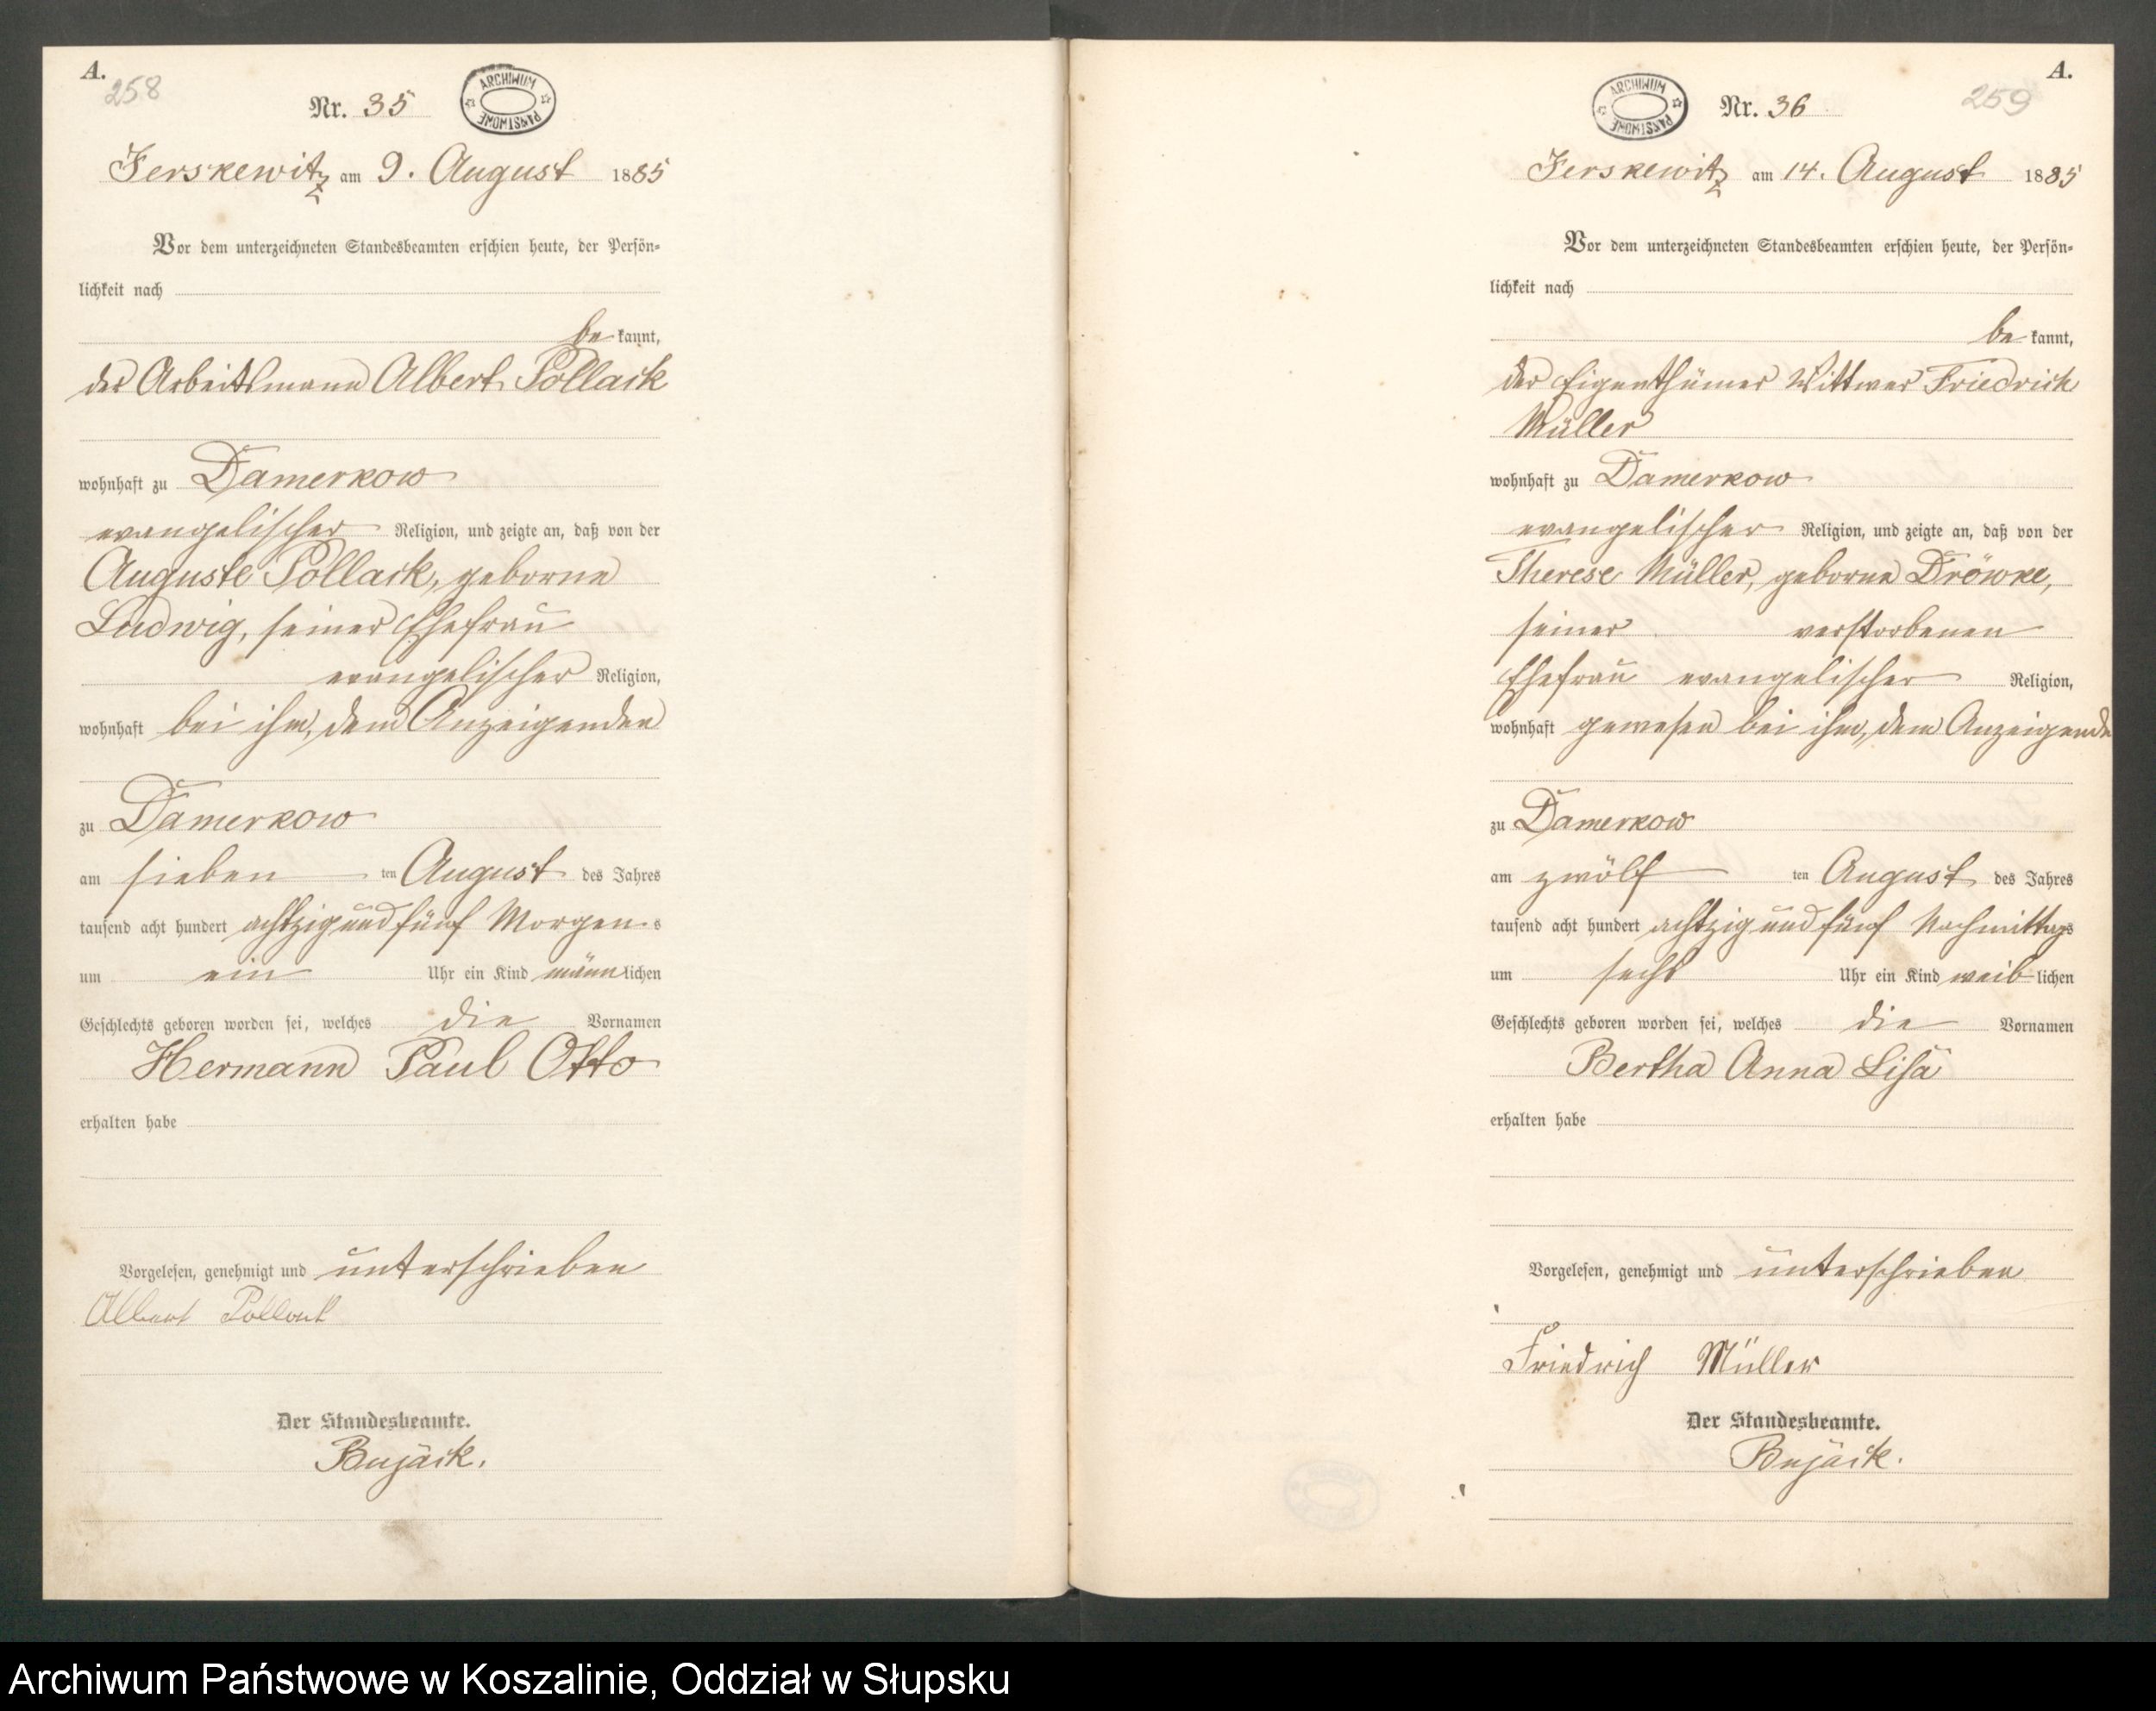 A.
258
Nr. 35
ARCHIWUM PAŃSTWOWE
Jerskewitz am 9. August 1885
Vor dem unterzeichneten Standesbeamten erschien heute, der Persön-
lichkeit nach
be kannt,
der Arbeitsmann Albert Pollack
wohnhaft zu Damerkow
evangelischer Religion, und zeigte an, daß von der
Auguste Pollack, geborne
Ludwig, seiner Ehefrau
evangelischer Religion,
wohnhaft bei ihm, dem Anzeigenden
zu Damerkow
am sieben ten August des Jahres
tausend acht hundert achtzig und fünf Morgens
um ein Uhr ein Kind männlichen
Geschlechts geboren worden sei, welches die Vornamen
Hermann Paul Otto
erhalten habe
Vorgelesen, genehmigt und unterschrieben
Albert Pollack
Der Standesbeamte.
Bujäck.
A.
259
ARCHIWUM PAŃSTWOWE
Nr. 36
Jerskewitz am 14. August 1885
Vor dem unterzeichneten Standesbeamten erschien heute, der Persön-
lichkeit nach
be kannt,
der Eigenthümer Wittwer Friedrich
Müller
wohnhaft zu Damerkow
evangelischer Religion, und zeigte an, daß von der
Therese Müller, geborne Dröwke,
seiner verstorbenen
Ehefrau evangelischer Religion,
wohnhaft gewesen bei ihm, dem Anzeigende
zu Damerkow
am zwölf ten August des Jahres
tausend acht hundert achtzig und fünf Nachmittags
um sechs Uhr ein Kind weiblichen
Geschlechts geboren worden sei, welches die Vornamen
Bertha Anna Lisa
erhalten habe
Vorgelesen, genehmigt und unterschrieben
Friedrich Müller
Der Standesbeamte.
Bujäck.
Archiwum Państwowe w Koszalinie, Oddział w Słupsku